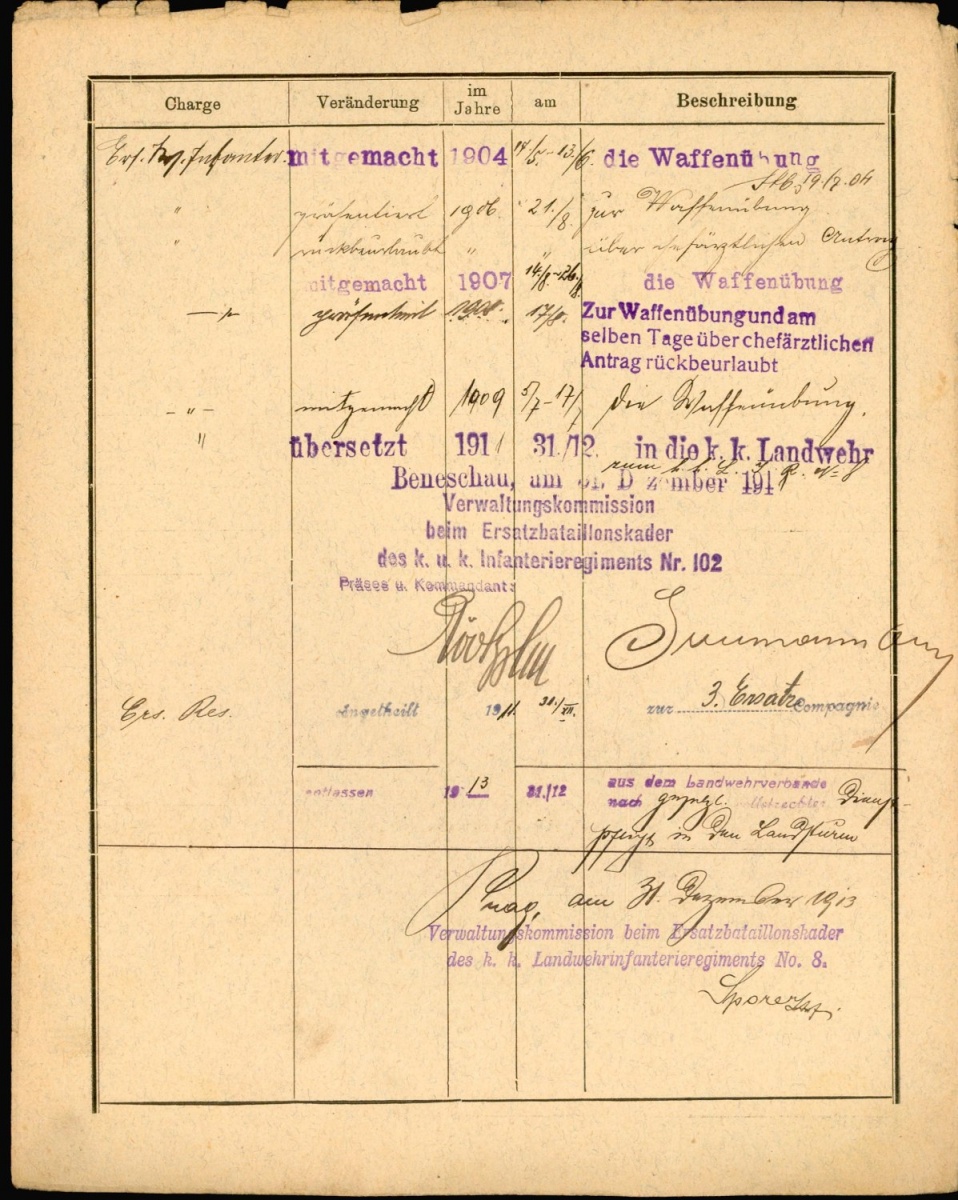 Charge Veränderung im Jahre am Beschreibung
Ers. Res. Infanter. mitgemacht 1904 14/5.-13./6. die Waffenübung
19./7. 04
" präsentiert 1906. 21./8. zur Waffenübung
" rückbeurlaubt " " über chefärztlichen Antrag
mitgemacht 1907 14./8.-26./8. die Waffenübung
—"— präsentiert 1908. 17/8. Zur Waffenübung und am
selben Tage über chefärztlichen
Antrag rückbeurlaubt
-"- mitgemacht 1909 5/7-17/7 die Waffenübung.
" übersetzt 1911 31./12. in die k. k. Landwehr
zum k. k. L. I. R. № 8
Beneschau, am 31. Dezember 191
Verwaltungskommission
beim Ersatzbataillonskader
des k. u. k. Infanterieregiments Nr. 102
Präses u. Kommandant:
Ers. Res. eingetheilt 1911. 31./XII. zur 3. Ersatz Compagnie
entlassen 1913 31./12 aus dem Landwehrverbande
nach gesetzl. vollstreckter Dienst-
pflicht in den Landsturm
Prag, am 31. Dezember 1913
Verwaltungskommission beim Ersatzbataillonskader
des k. k. Landwehrinfanterieregiments No. 8.